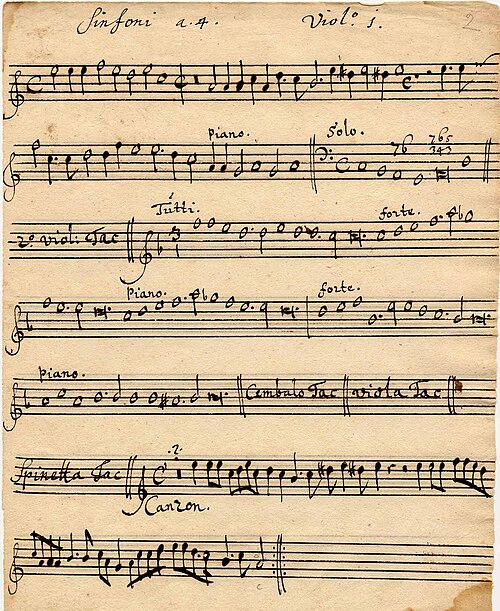 Sinfoni a. 4. Viol.º 1. 2
Piano. Solo. 76 765 343
Tutti. forte.
2.º viol: Tac 3
Piano. forte.
Piano.
Cembalo Tac viola Tac
Spinetta Tac .2.
Canzon.